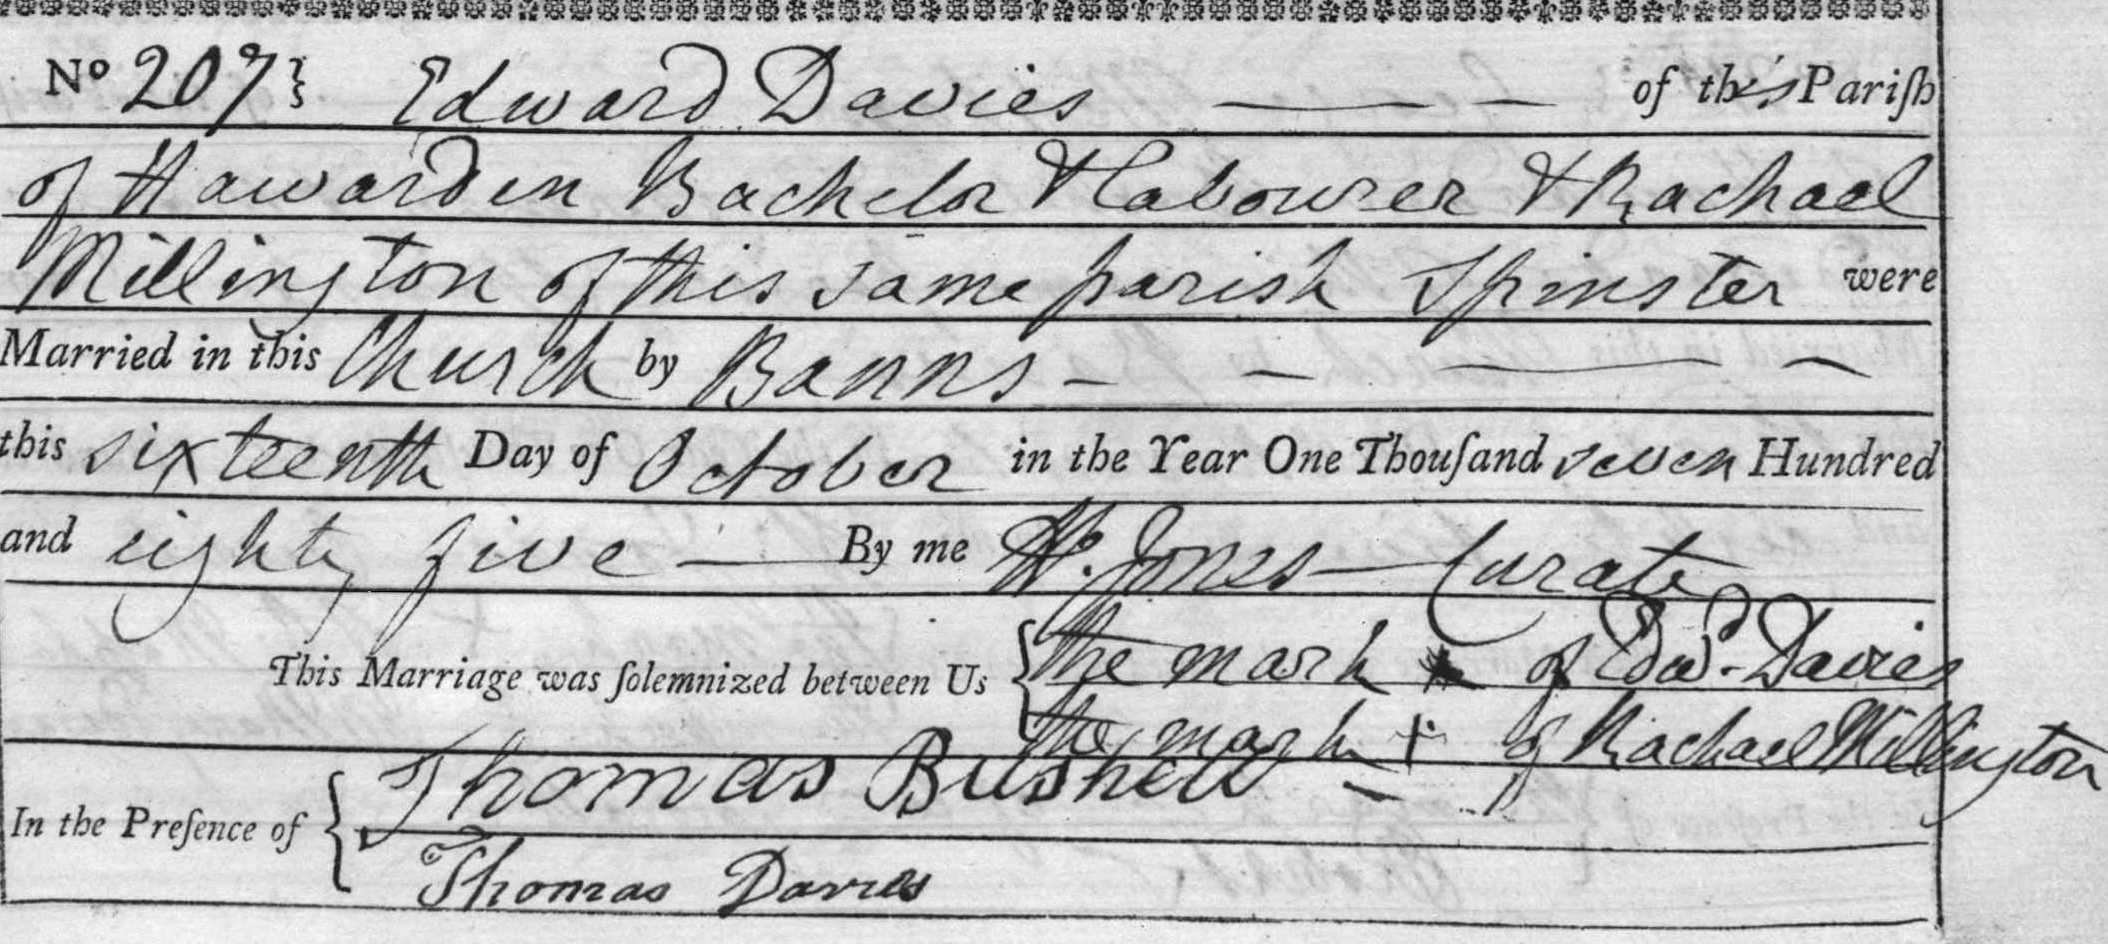 No 207} Edward Davies — — of this Pariſh
of Hawarden Bachelor & Labourer & Rachael
Millington of this same parish Spinster were
Married in this Church by Banns - - — —
this sixteenth Day of October in the Year One Thouſand seven Hundred
and eighty five — By me W. Jones — Curate
This Marriage was ſolemnized between Us { the mark x of Edwd. Davies
the mark + of Rachael Millington
In the Preſence of { Thomas Bushell -
Thomas Davies